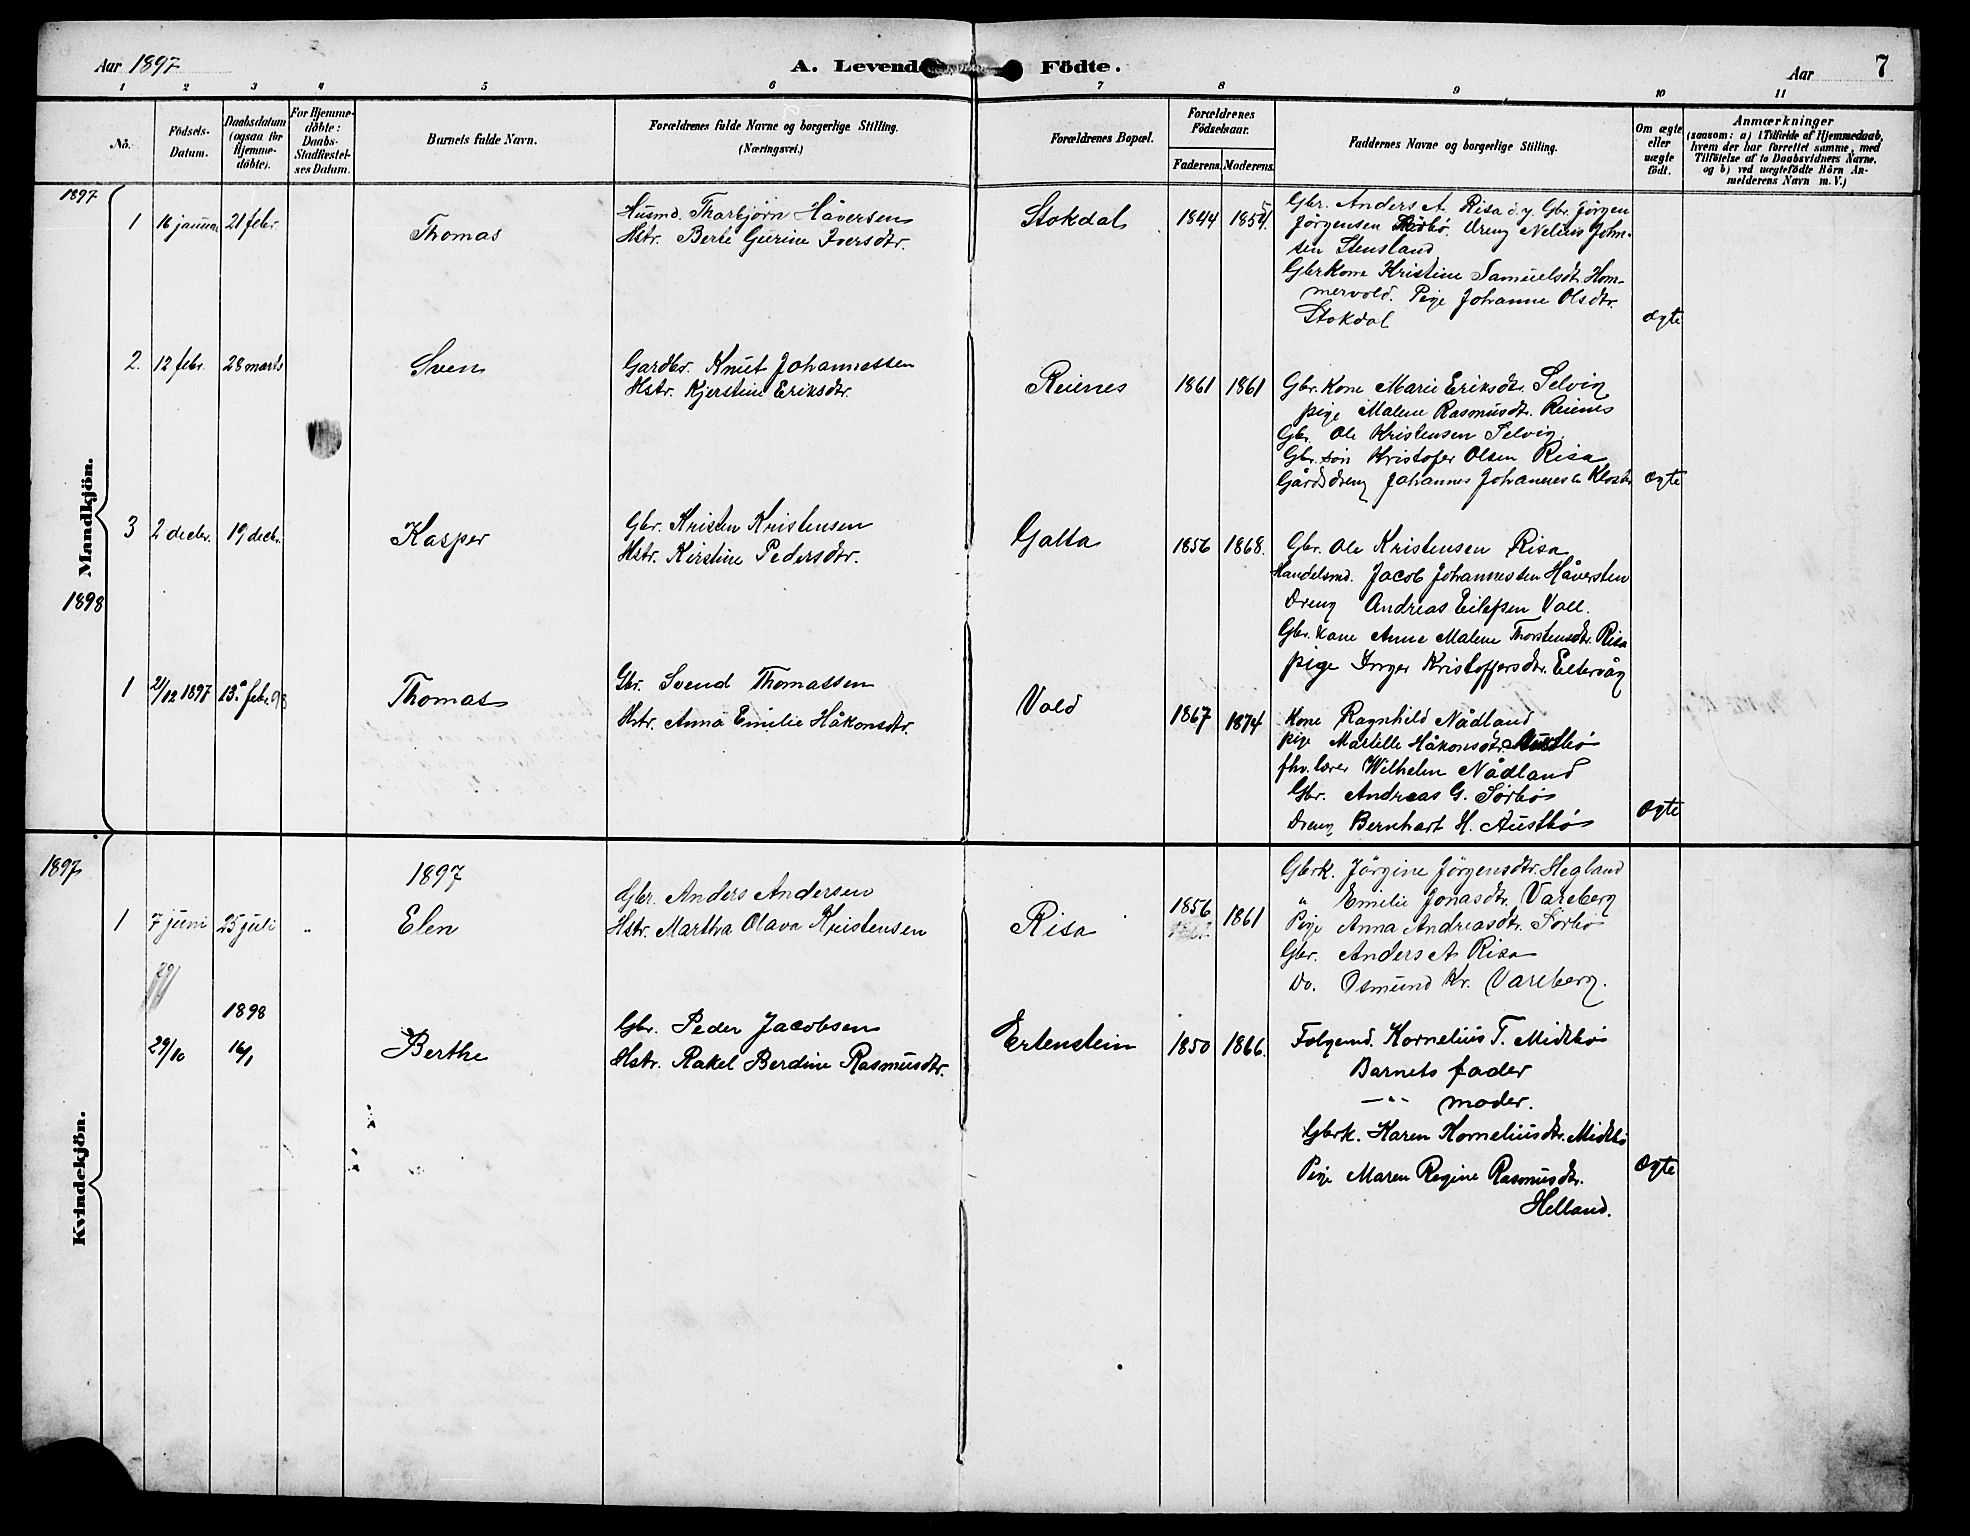 Aar 1897
A. Levende Födte.
Aar 7
1 2 3 4 5 6 7 8 9 10 11
No.
Födsels-
Datum.
Daabsdatum
(ogsaa for
Hjemme-
döbte).
For Hjemme-
döbte:
Daabs-
Stadfæstel-
ses Datum.
Barnets fulde Navn.
Forældrenes fulde Navne og borgerlige Stilling.
(Næringsvei.)
Forældrenes Bopæl.
Forældrenes
Födselsaar.
Faderens. Moderens.
Faddernes Navne og borgerlige Stilling.
Om ægte
eller
uægte
födt.
Anmærkninger
(saasom: a) i Tilfælde af Hjemmedaab,
hvem der har forrettet samme, med
Tilföielse af to Daabsvidners Navne.
og b) ved uægtefödte Börn An-
melderens Navn m. V.)
Mandkjön.
1897
1 16 januar 21 febr. Thomas
Husmd. Tharbjørn Håversen
Hstr. Berte Gurine Iversdtr.
Stokdal 1844 1854.
Gbr. Anders A. Risa d.y. Gbr. Jörgen
Jörgensen Sörbö. Dreng Nelius John-
sen Stensland
Gbrkone Kristine Samuelsdtr. Hom-
mervold. Pige Johanne Olsdtr.
Stokdal
ægte
2. 12 febr. 28 marts Sven
Gardbr. Knut Johannessen
Hstr. Kjerstine Eriksdtr.
Reienes 1861 1861
Gbr. Kone Marie Eriksdtr. Selvig
pige Malene Rasmusdtr. Reienes
Gbr. Ole Kristensen Selvig
Gbr. sön Kristofer Olsen Risa
Gårddreng Johannes Johannesen Kloster
ægte
3 2 decbr. 19 decbr. Kasper
Gbr. Kristen Kristensen
Hstr. Kirstine Pedersdtr.
Galta 1856 1868.
Gbr. Ole Kristensen Risa
Handelsmd. Jacob Johannessen Håversten
Dreng Andreas Eilefsen Vall.
Gbr. Kone Anne Malene Thorstensdtr. Risa
pige Inger Kristoffersdtr. Eltervåg
1898
1 21/12 1897 13. febr. 98 Thomas
Gbr. Svend Thomassen
Hstr. Anna Emilie Håkonsdtr.
Vold 1867 1874
Kone Ragnhild Nådland
pige Martelle Håkonsdtr. Austbø
fhv. lærer Wilhelm Nådland
Gbr. Andreas G. Sørbø
Dreng Bernhart H. Austbø
ægte
Kvindekjön.
1897
1897
1 7 juni 25 juli " Elen
Gbr. Anders Andersen
Hstr. Martha Olava Kristensen
Risa 1856 1861
Gbrk. Jörgine Jörgensdtr. Hegland
" Emilie Jonasdtr. Vareberg
Pige Anna Andreasdtr. Sørbø
Gbr. Anders A Risa
Do. Osmund Kr. Vareberg.
29/
1898
29/10 16/1 Berthe
Gbr. Peder Jacobsen
Hstr. Rakel Berdine Rasmusdtr.
Ertenstein 1850 1866.
Folgemd. Kornelius T. Midtbø
Barnets fader
—"— moder.
Gbrk. Karen Korneliusdtr. Midtbø
Pige Maren Regine Rasmusdtr.
Helland.
ægte